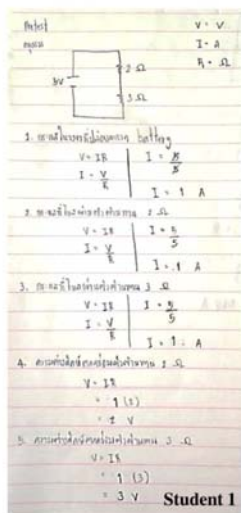 Pretest
V = V
I = A
R = Ω
5V
2 Ω
3 Ω
1. กระแสในวงจรที่ปล่อยออกจาก battery
V = IR
I = V/R
I = 5/5
I = 1 A
2. กระแสที่ไหลผ่านตัวต้านทาน 2 Ω
V = IR
I = V/R
I = 5/5
I = 1 A
3. กระแสที่ไหลผ่านตัวต้านทาน 3 Ω
V = IR
I = V/R
I = 5/5
I = 1 A
4. ความต่างศักย์ตกคร่อมตัวต้านทาน 2 Ω
V = IR
= 1 (2)
= 2 V
5. ความต่างศักย์ตกคร่อมตัวต้านทาน 3 Ω
V = IR
= 1 (3)
= 3 V
Student 1